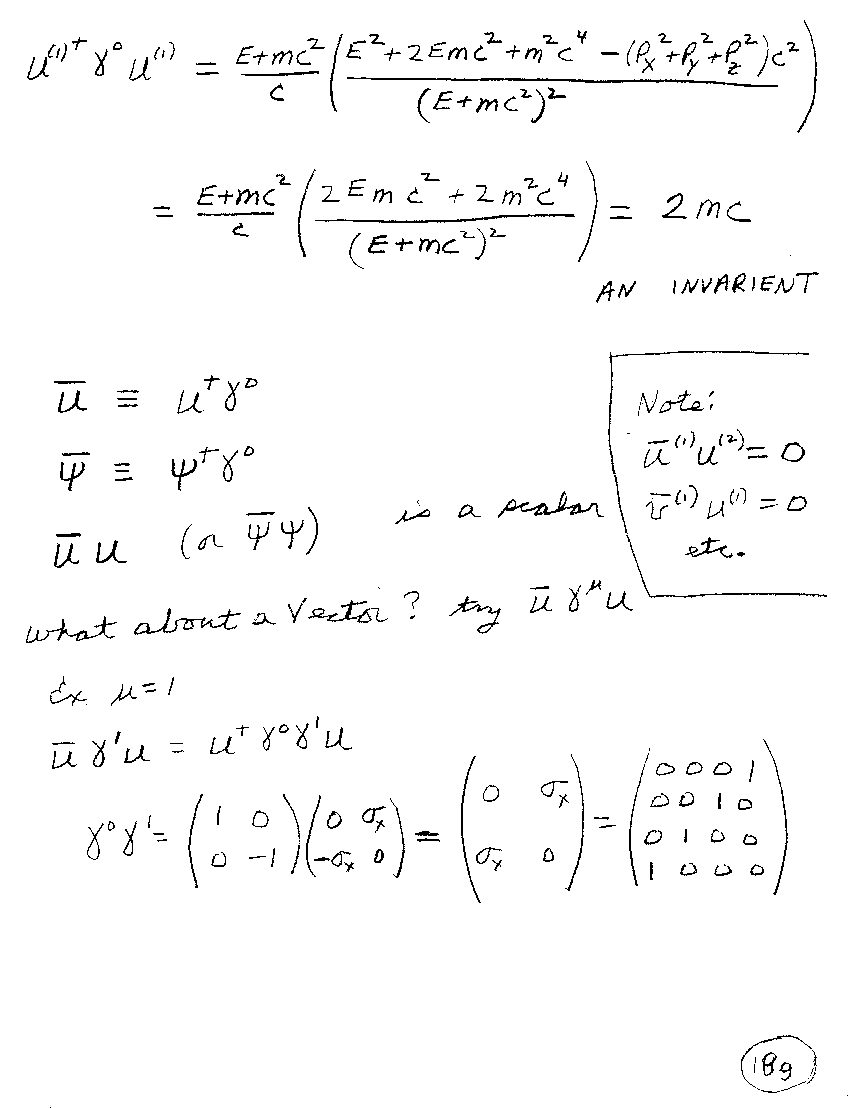 u⁽¹⁾† γ⁰ u⁽¹⁾ = (E+mc²)/c ( (E² + 2Emc² + m²c⁴ − (Pₓ² + P_y² + P_z²)c²) / (E+mc²)² )
= (E+mc²)/c ( (2Emc² + 2m²c⁴) / (E+mc²)² ) = 2mc
AN INVARIENT
ū ≡ u†γ⁰
ψ̄ ≡ ψ†γ⁰
ū u (or ψ̄ψ) is a scalar
Note:
ū⁽¹⁾u⁽²⁾ = 0
v̄⁽¹⁾u⁽¹⁾ = 0
etc.
what about a Vector? try ū γ^μ u
Ex μ=1
ū γ¹u = u† γ⁰γ¹u
γ⁰γ¹ = (1 0; 0 −1)(0 σₓ; −σₓ 0) = (0 σₓ; σₓ 0) = (0 0 0 1; 0 0 1 0; 0 1 0 0; 1 0 0 0)
189